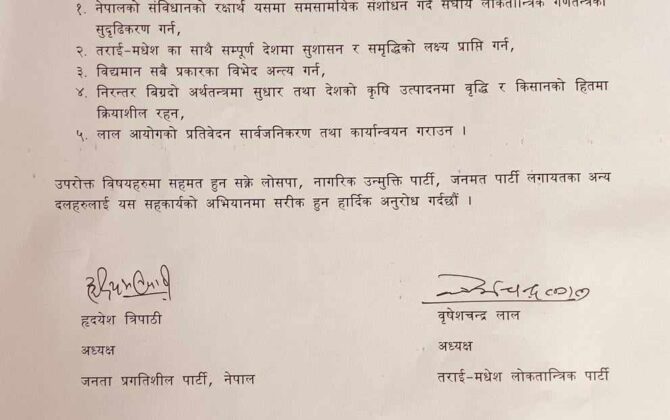 १. नेपालको संविधानको रक्षार्थ यसमा समसामयिक संशोधन गर्दै संघीय लोकतान्त्रिक गणतन्त्रको
सुदृढिकरण गर्न,
२. तराई-मधेश का साथै सम्पूर्ण देशमा सुशासन र समृद्धिको लक्ष्य प्राप्ति गर्न,
३. विद्यमान सबै प्रकारका विभेद अन्त्य गर्न,
४. निरन्तर बिग्रदो अर्थतन्त्रमा सुधार तथा देशको कृषि उत्पादनमा वृद्धि र किसानको हितमा
क्रियाशील रहन,
५. लाल आयोगको प्रतिवेदन सार्वजनिकरण तथा कार्यान्वयन गराउन ।
उपरोक्त विषयहरुमा सहमत हुन सक्ने लोसपा, नागरिक उन्मुक्ति पार्टी, जनमत पार्टी लगायतका अन्य
दलहरुलाई यस सहकार्यको अभियानमा सरीक हुन हार्दिक अनुरोध गर्दछौं ।
हृदयेश त्रिपाठी
अध्यक्ष
जनता प्रगतिशील पार्टी, नेपाल
वृषेशचन्द्र लाल
अध्यक्ष
तराई-मधेश लोकतान्त्रिक पार्टी